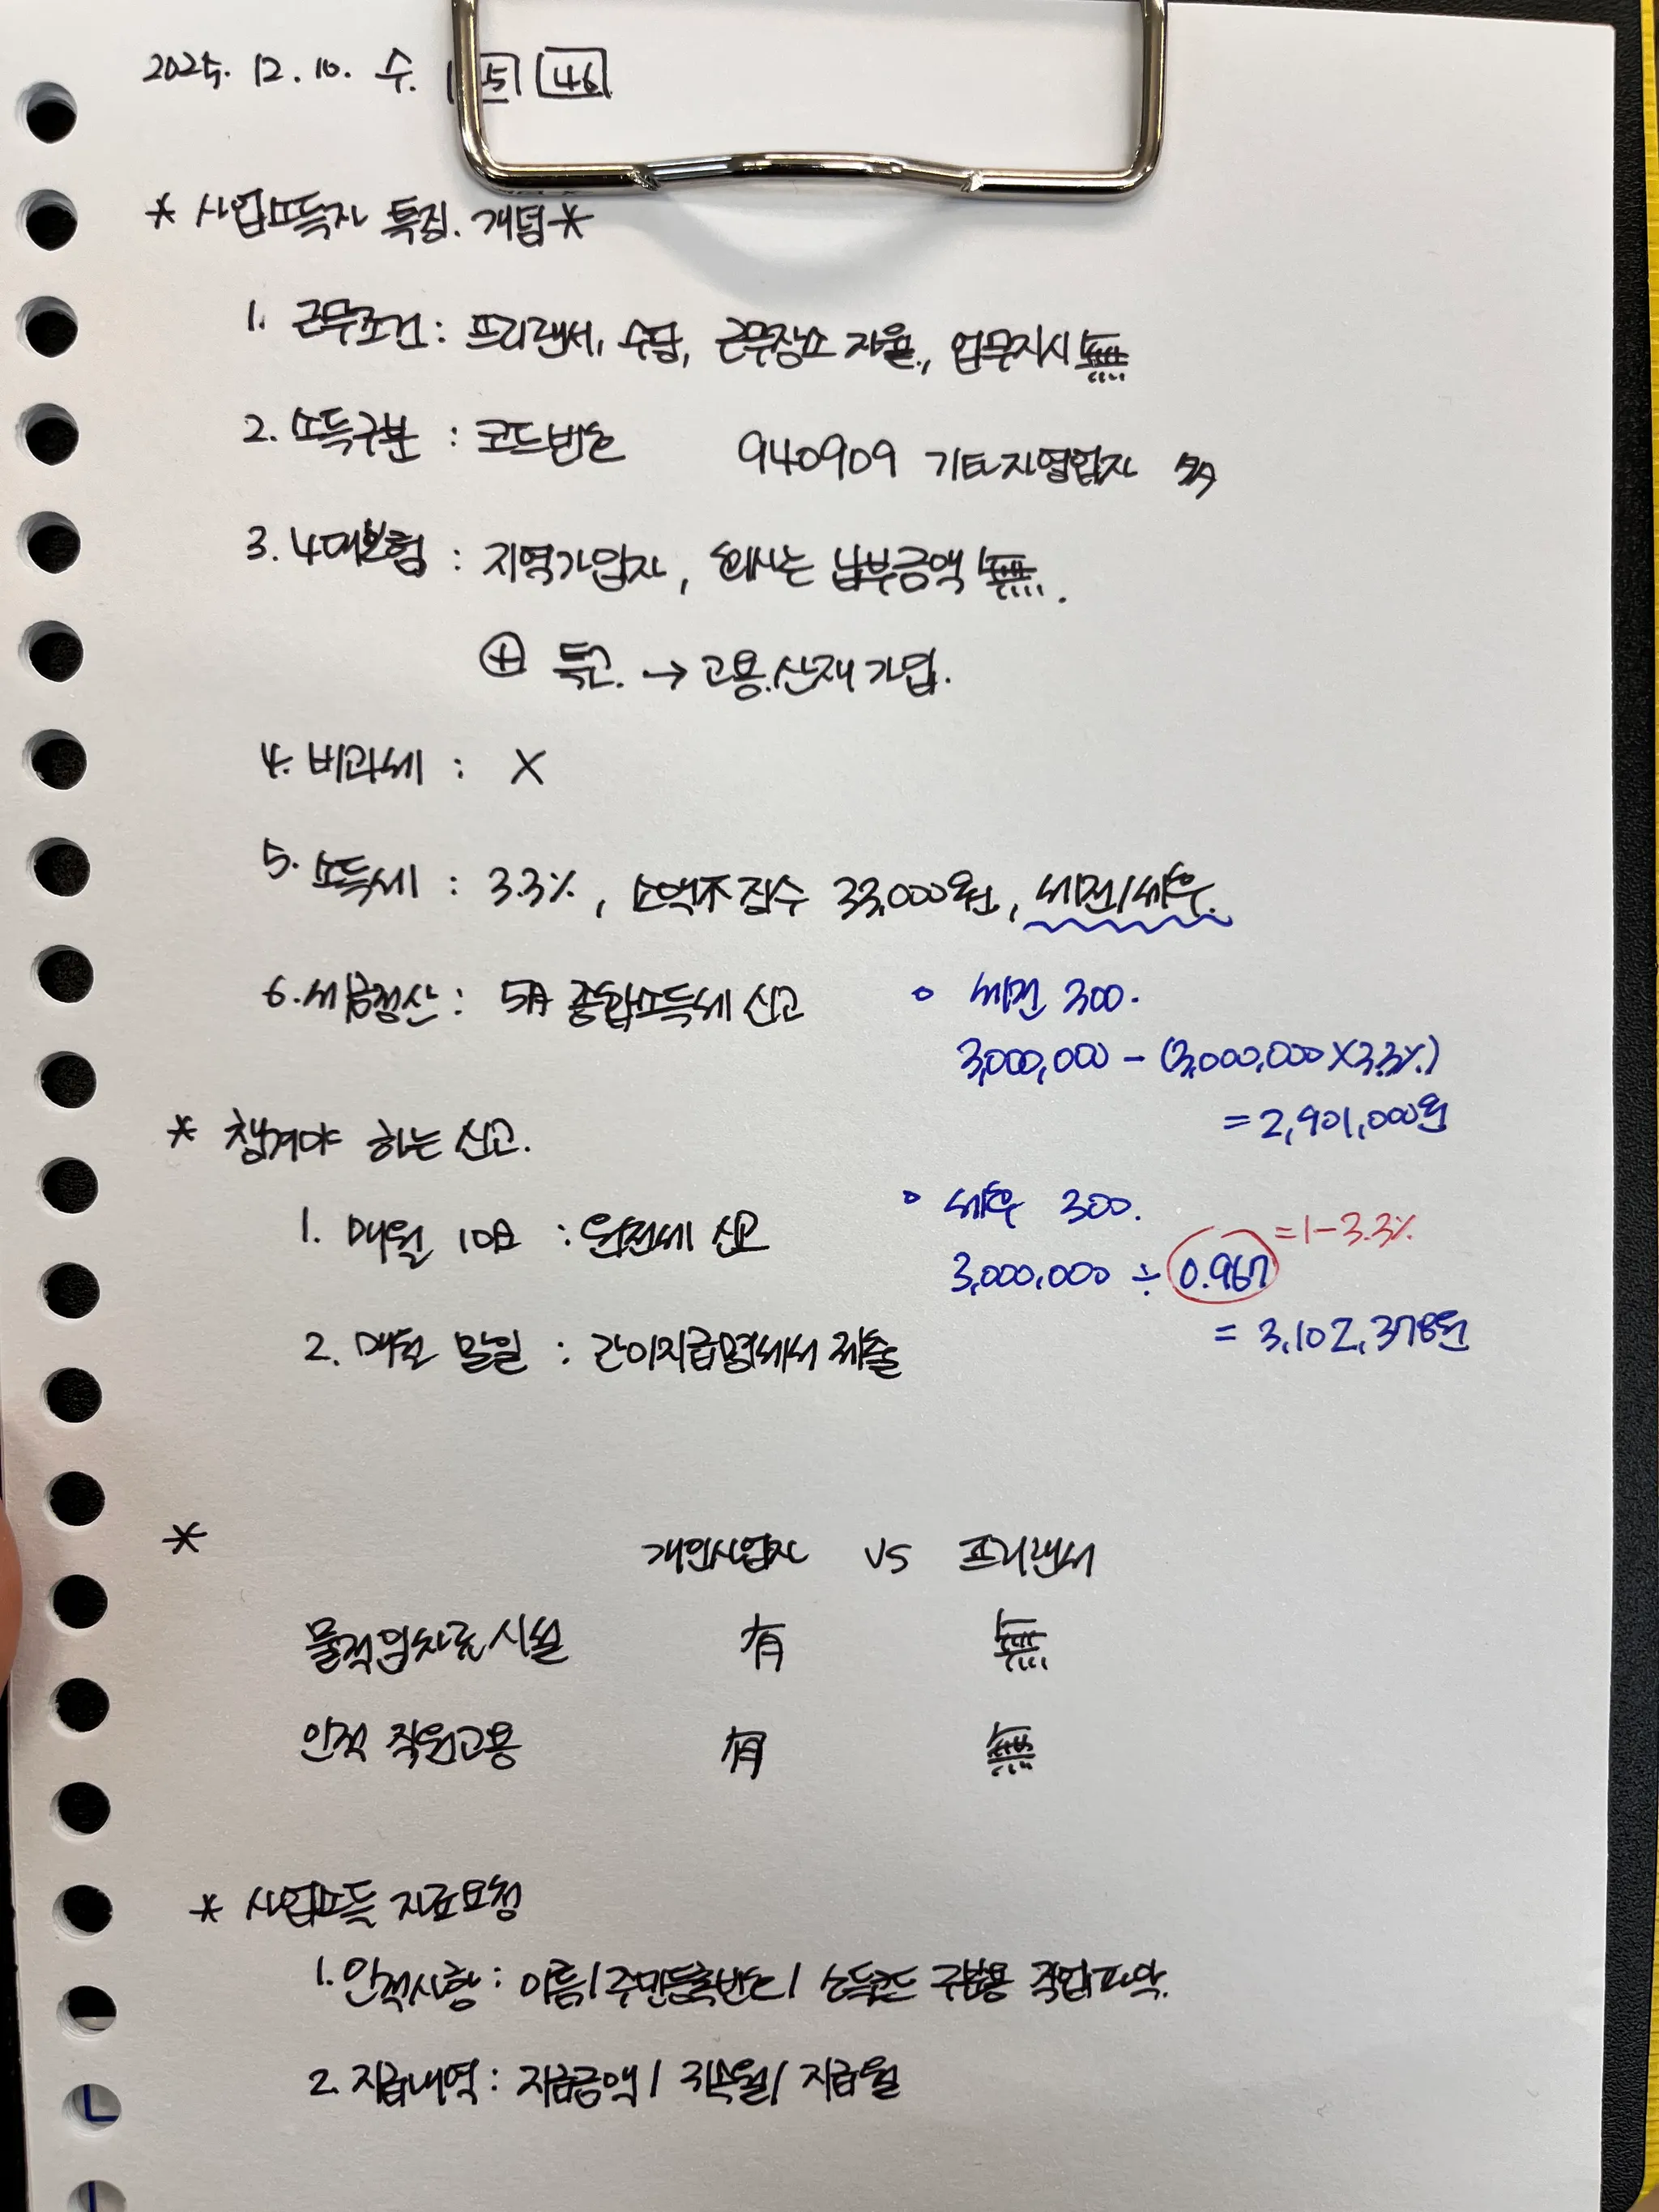 2025. 12. 10. 수. 5 46
* 사업소득자 특징. 개념 *
1. 근무조건 : 프리랜서, 수당, 근무장소 자율, 업무지시 無
2. 소득구분 : 코드번호 940909 기타자영업자 多
3. 4대보험 : 지역가입자, 회사는 납부금액 無.
⊕ 특고. → 고용.산재 가입.
4. 비과세 : X
5. 소득세 : 3.3%, 소액不징수 33,000원, 세전/세후.
6. 세금정산 : 5月 종합소득세 신고
○ 세전 300.
3,000,000 - (3,000,000 X 3.3%)
= 2,901,000원
* 챙겨야 하는 신고.
1. 매월 10日 : 원천세 신고
○ 세후 300.
3,000,000 ÷ 0.967 = 1-3.3%
= 3,102,378원
2. 매월 말일 : 간이지급명세서 제출
* 개인사업자 VS 프리랜서
물적 업차료, 시설 有 無
인적 직원고용 有 無
* 사업소득 자료요청
1. 인적사항 : 이름/주민등록번호/ 소득코드 구분용 직업파악.
2. 지급내역 : 지급금액/ 귀속월/ 지급월